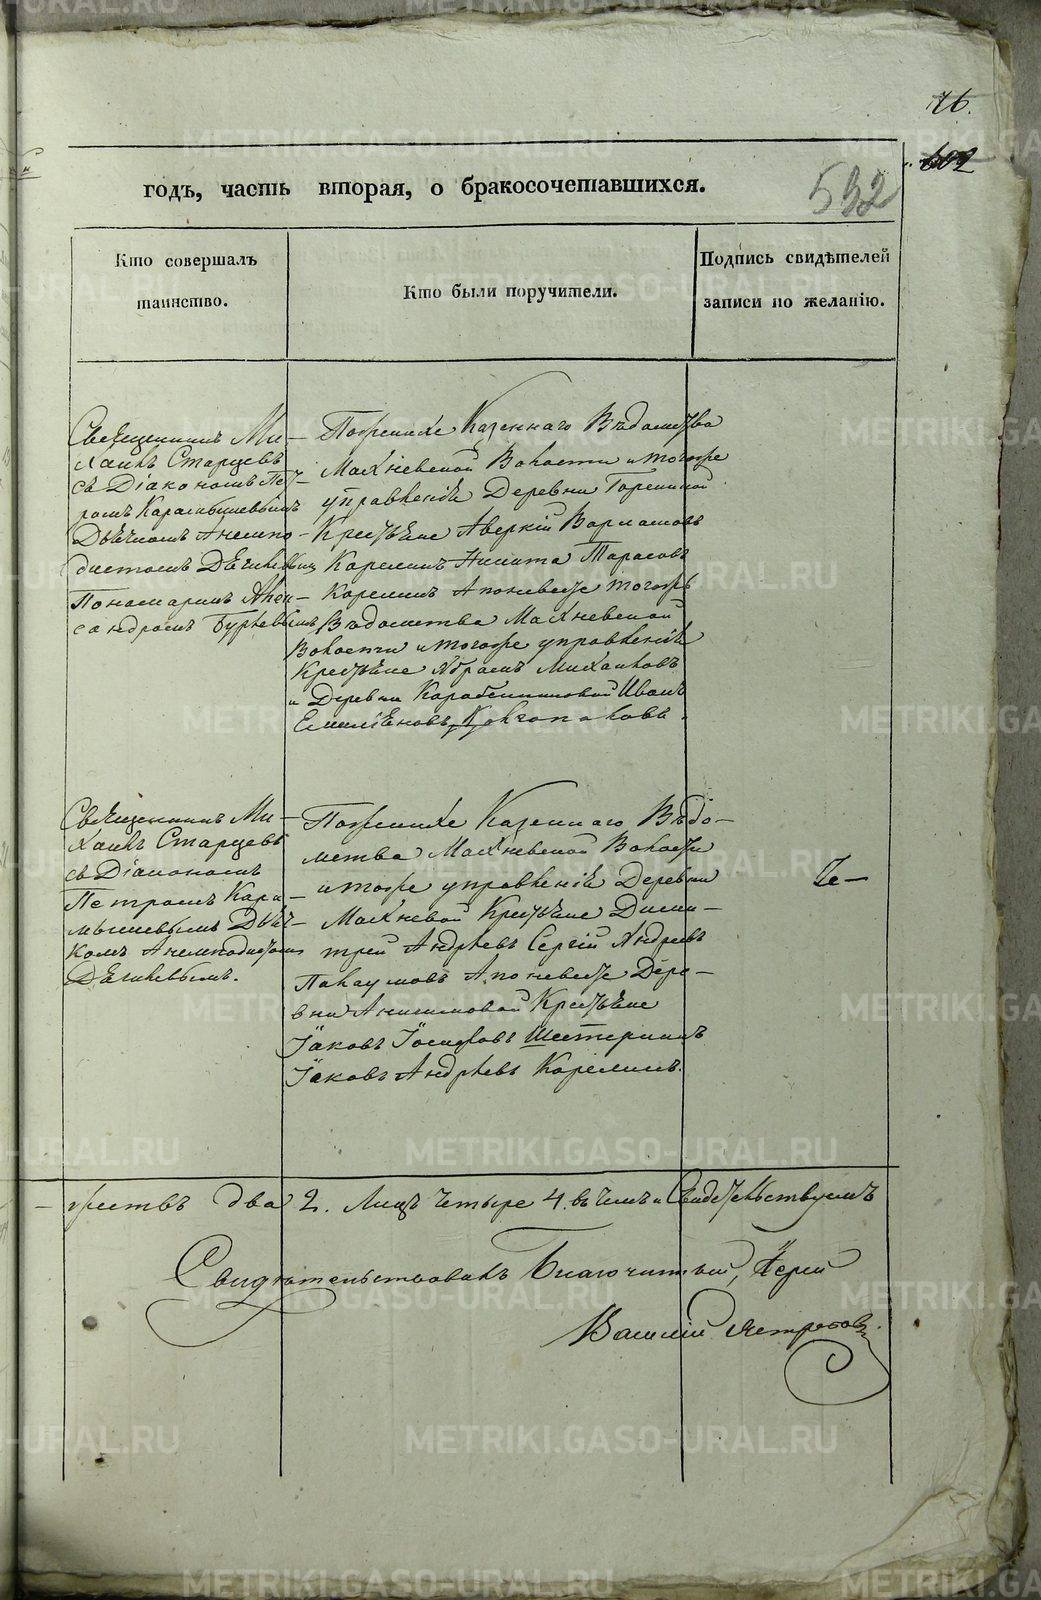 76.
602
532
годъ, часть вторая, о бракосочетавшихся.
Кто совершалъ
таинство.
Кто были поручители.
Подпись свидѣтелей
записи по желанію.
Священникъ Ми-
хаилъ Старцевъ
съ Діакономъ Пет-
ромъ Карамышевымъ
Дьячкомъ Анемпо-
дистомъ Дягилевымъ
Пономаремъ Алек-
сандромъ
По женихѣ Казеннаго Вѣдомства
Махневской Волости и тогоже
управленія Деревни Гореликой
Крестьяне Аверкій Варламовъ
Карелинъ Никита Тарасовъ
Карелинъ А по невестѣ тогожъ
Вѣдомства Махневской
Волости и тогоже управленія
Крестьяне Абрамъ Михаиловъ
и Деревни Иванъ
Емиліяновъ Колчановъ.
Священникъ Ми-
хаилъ Старцевъ
съ Діакономъ
Петромъ Кара-
мышевымъ Дьяч-
комъ Анемподистомъ
Дягилевымъ.
По женихѣ Казеннаго Вѣдо-
мства Махневской Волости
и тогоже управленія Деревни
Махневой Крестьяне Дими-
трей Андрѣевъ Сергій Андреевъ
Пакаумовъ А по невестѣ Дере-
вни Анисимовой Крестьяне
Іаковъ Іосифовъ Шестеринъ
Іаковъ Андрѣевъ Карелинъ.
жествъ два 2. Лицъ четыре 4. въ чемъ и Свидетельствуемъ
Свидѣтельствовалъ Благочинный, Іерей
Василій Ястребовъ.
METRIKI.GASO-URAL.RU